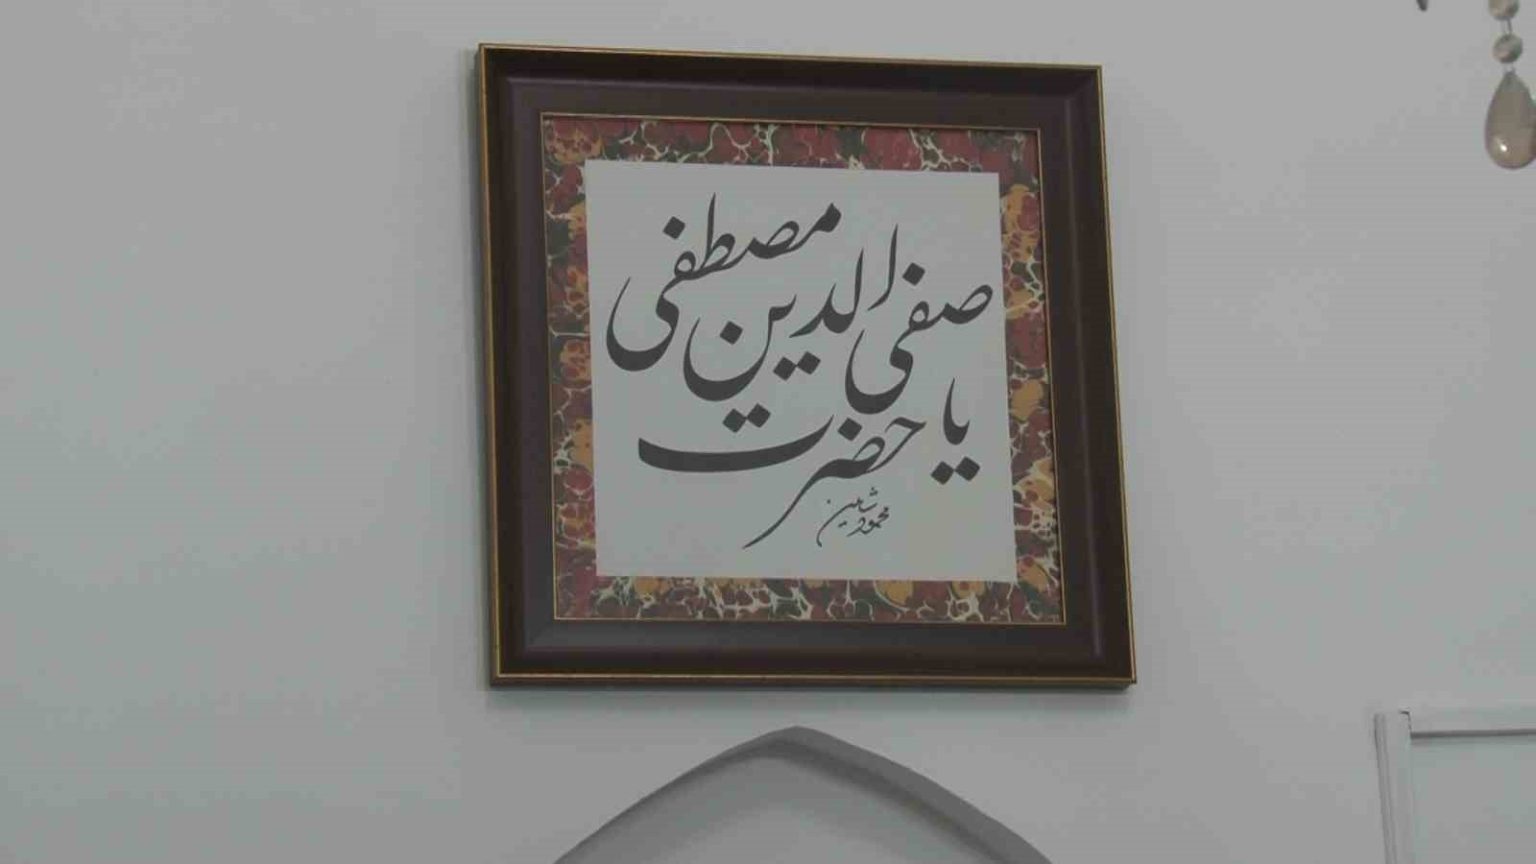 يا حضرت
صفی الدین مصطفی
محمود شاهين